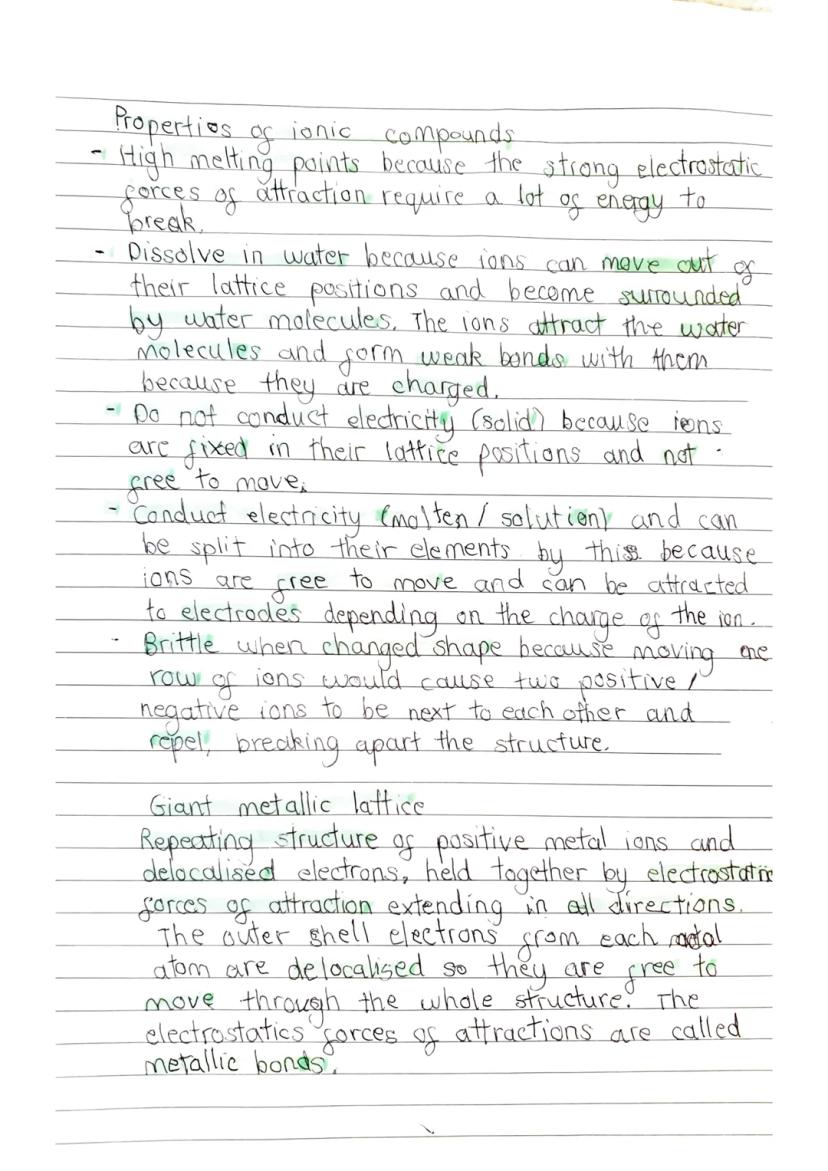 Properties of ionic compounds
- High melting points because the strong electrostatic
forces of attraction require a lot of energy to
break.
- Dissolve in water because ions can move out of
their lattice positions and become surrounded
by water molecules. The ions attract the water
molecules and form weak bonds with them
because they are charged.
- Do not conduct electricity (solid) because ions
are fixed in their lattice positions and not
free to move.
- Conduct electricity (molten / solution) and can
be split into their elements by this because
ions are free to move and can be attracted
to electrodes depending on the charge of the ion.
- Brittle when changed shape because moving one
row of ions would cause two positive /
negative ions to be next to each other and
repel, breaking apart the structure.
Giant metallic lattice
Repeating structure of positive metal ions and
delocalised electrons, held together by electrostatic
forces of attraction extending in all directions.
The outer shell electrons from each metal
atom are delocalised so they are free to
move through the whole structure. The
electrostatics forces of attractions are called
metallic bonds.